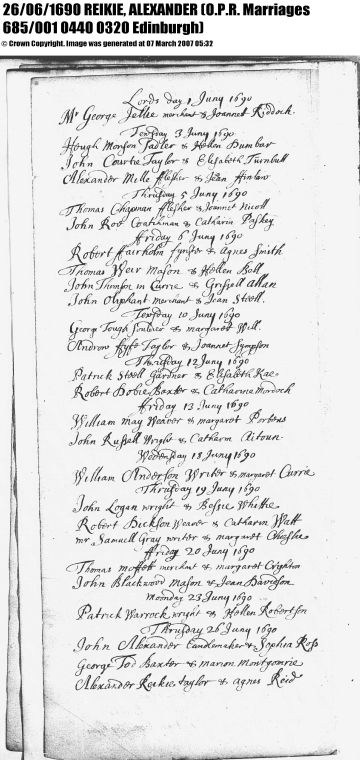 26/06/1690 REIKIE, ALEXANDER (O.P.R. Marriages
685/001 0440 0320 Edinburgh)
© Crown Copyright. Image was generated at 07 March 2007 05:32
Lords day 1 Juny 1690
Mr George merchant & Joannet Riddoch
Twesday 3 Juny 1690
Hough Monson Sadler & Hellen Dumbar
John Courtie Taylor & Elisabeth Turnbull
Alexander Mille flesher & Jean Finlaw
Thrusday 5 Juny 1690
Thomas Chapman flesher & Jonnet Nicoll
John Roo Coatchman & Catharin Paskey
ffriday 6 Juny 1690
Robert ffairholm & Agnes Smith
Thomas Weir Mason & Hellen Bell
John Thomson in Currie & Grissell Allan
John Oliphant merchant & Jean Steell
Twesday 10 Juny 1690
George Tough Souldier & margaret Will.
Andrew ffyfe Taylor & Joannet Sympson
Thursday 12 Juny 1690
Patrick Steell Gardner & Elisabeth Rae
Robert Bobie Baxter & Catharine Mordoch
ffriday 13 Juny 1690
William may Weaver & margaret Porteus
John Russell Wright & Catharn Aitoun
Wedensday 18 Juny 1690
William Anderson Writer & margaret Currie
Thrusday 19 Juny 1690
John Logan wright & Bessie Whythe
Robert Dickson Weaver & Catharin Watt
mr Samuell Gray writer & margaret Chieslie
ffriday 20 Juny 1690
Thomas moffett merchant & margaret Crighton
John Blackwood Mason & Jean Davidson
Moonday 23 Juny 1690
Patrick Warrock wright & Hellen Robertson
Thrusday 26 Juny 1690
John Alexander Candlemaker & Sophia Ross
George Tod Baxter & marion Montgomrie
Alexander Reikie taylor & agnes Reid